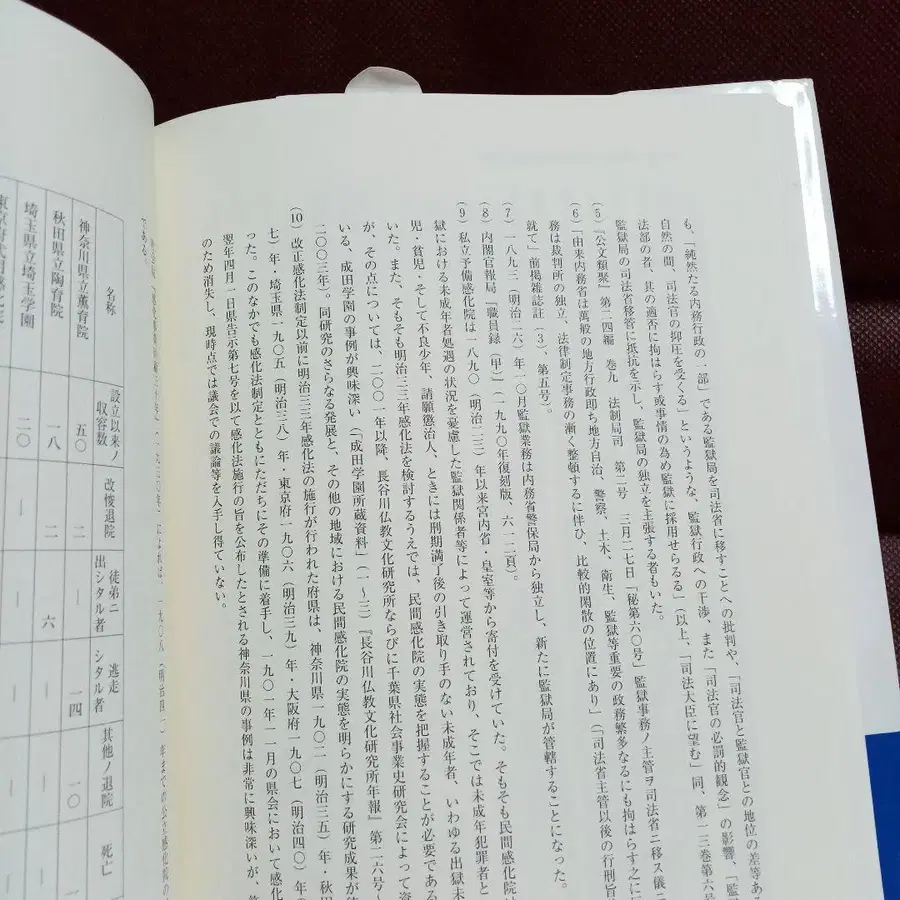 も、「純然たる内務行政の一部」である監獄局を司法省に移すことへの批判や、「司法官と監獄官との地位の差等ある
自然の間、司法官の抑圧を受くる」というような、監獄行政への干渉、また「司法官の必罰的観念」の影響、「監
法部の者、其の適否に拘はらす或事情の為め監獄に採用せらるる」(以上、「司法大臣に望む」同、第一三巻第六号
監獄局の司法省移管に抵抗を示し、監獄局の独立を主張する者もいた。
(5)『公文類聚』第二四編 巻九 法制局司 第二号 三月二七日「秘第六〇号」監獄事務ノ主管ヲ司法省ニ移ス儀ニ
(6)「由来内務省は萬般の地方行政即ち地方自治、警察、土木、衛生、監獄等重要の政務繁多なるにも拘はらす之に
務は裁判所の独立、法律制定事務の漸く整頓するに伴ひ、比較的閑散の位置にあり」(「司法省主管以後の行刑旨
就て」前掲雑誌註(3)、第五号)。
(7)一八九三(明治二六)年一〇月監獄業務は内務省警保局から独立し、新たに監獄局が管轄することになった。
(8)内閣官報局『職員録(甲)』(一九九〇年復刻版、六一二頁)。
(9)私立予備感化院は一八九〇(明治二三)年以来宮内省・皇室等から寄付を受けていた。そもそも民間感化院は
獄における未成年者処遇の状況を憂慮した監獄関係者等によって運営されており、そこでは未成年犯罪者と
児・貧児・そして不良少年、請願懲治人、ときには刑期満了後の引き取り手のない未成年者、いわゆる出獄未
た。また、そもそも明治三三年感化法を検討するうえでは、民間感化院の実態を把握することが必要である
が、その点については、二〇〇一年以降、長谷川仏教文化研究所ならびに千葉県社会事業史研究会によって資
いる。成田学園の事例が興味深い(「成田学園所蔵資料」(一～三)『長谷川仏教文化研究所年報』第二六号～
二〇〇三年)。同研究のさらなる発展と、その他の地域における民間感化院の実態を明らかにする研究成果が
(10)改正感化法制定以前に明治三三年感化法の施行が行われた府県は、神奈川県一九〇二(明治三五)年・秋田
七)年・埼玉県一九〇五(明治三八)年・東京府一九〇六(明治三九)年・大阪府一九〇七(明治四〇)年の
った。このなかでも感化法制定とともにただちにその準備に着手し、一九〇一年一一月の県会において感化
翌年四月一日県告示第七号を以て感化法施行の旨を公布したとされる神奈川県の事例は非常に興味深いが、
のため消失し、現時点では議会での議論等を入手し得ていない。
である
名称
設立以来ノ収容数
改悛退院
徒弟ニ出シタル者
逃走シタル者
其他ノ退院
死亡
神奈川県立薫育院
五〇
二
―
一四
一〇
―
秋田県立陶育院
一八
二
六
―
―
―
埼玉県立埼玉学園
二〇
―